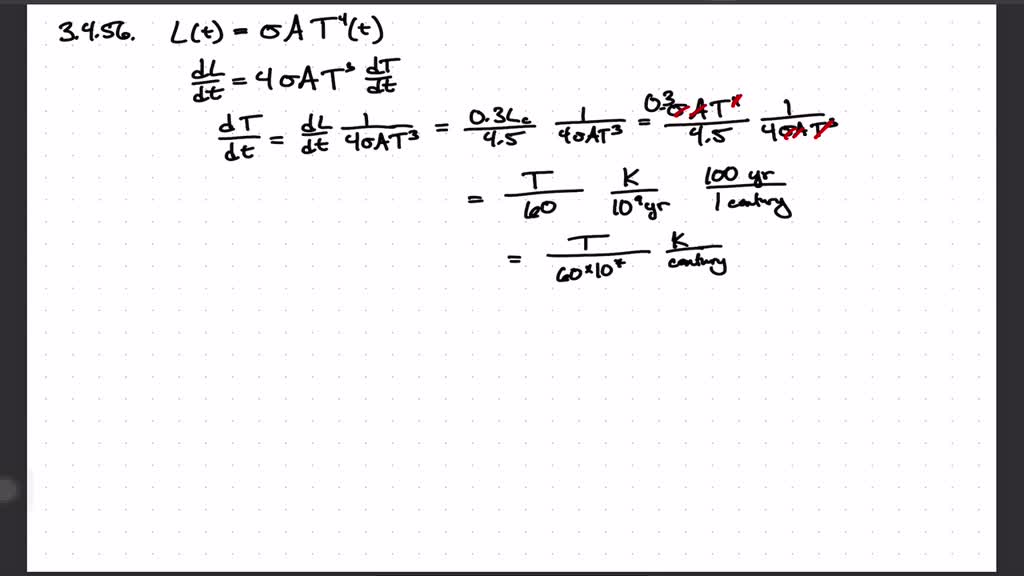 3.4.56. L(t) = σAT⁴(t)
dL/dt = 4σAT³ dT/dt
dT/dt = dL/dt 1/4σAT³ = 0.3L꜀/4.5 1/4σAT³ = 0.3σAT⁴/4.5 1/4σAT³
= T/60 K/10⁹yr 100 yr/1 century
= T/60×10⁷ K/century